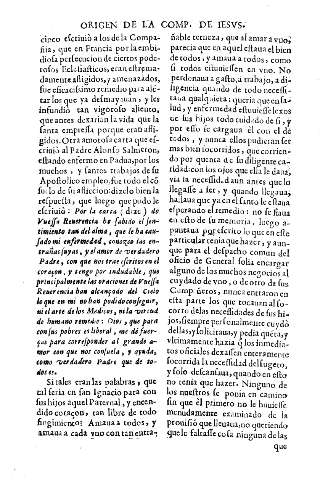 ORIGEN DE LA COMP. DE IESVS.
cinco escriuiò a los de la Compa-
ñia, que en Francia por la embi-
diosa persecucion de ciertos pode-
rosos Eclesiasticos, eran estrema-
damente afligidos, y amenazados,
fue eficacissimo remedio para alé-
tar los que ya desmayauan, y les
infundiò tan vigoroso aliento,
que antes dexaràn la vida que la
santa empressa porque eran afli-
gidos. Otra amorosa carta que es-
criuiò al Padre Alonso Salmeron,
estando enfermo en Padua, por los
muchos, y santos trabajos de su
Apostolico empleo, fue todo el cõ-
suelo de su afliccion: dizelo bien la
respuesta, que luego que pudo le
escriuiò: Por la carta (dize) de
Vuessa Reuerencia he sabido el sen-
timiento tan del alma, que le ha cau-
sado mi enfermedad, conozco las en-
trañas suyas, y el amor de verdadero
Padre, con que nos trae escritos en el
coraçon, y tengo por indudable, que
principalmente las oraciones de Vuessa
Reuerencia han alcançado del Cielo
lo que en mi no han podido conseguir,
ni el arte de los Medicos, ni la virtud
de humano remedio: Dios, que para
con sus pobres es liberal, me dè fuer-
ças para corresponder al grande a-
mor con que nos consuela, y ayuda,
como verdadero Padre que de to-
dos es.
Si tales eran las palabras, que
tal seria en san Ignacio para con
sus hijos aquel Paternal, y encen-
dido coraçon, tan libre de todo
fingimiento? Amaua a todos, y
amaua a cada vno con tan entra-
ñable terneza, que al amar a vno,
parecia que en aquel estaua el bien
de todos, y amaua a todos, como
si todos estuuiessen en vno. No
perdonaua a gasto, a trabajo, a di-
ligencia quando de todo necessi-
taua qualquiera: queria que en sa-
lud, y enfermedad estuuiesse la voz
de sus hijos todo cuidado de si, y
por esso se cargaua èl con el de
todos, y nunca ellos pudieran ser
mas bien socorridos, que corrien-
do por quenta de su diligente ca-
ridad: con los ojos que ella le daua,
via la necessidad aun antes que
llegasse a ser, y quando llegaua,
hallaua que ya en el santo le estaua
esperando el remedio: no se fiaua
en esto de su memoria, luego a-
puntaua por escrito lo que en este
particular tenia que hazer, y aun-
que para el despacho comun del
oficio de General solia encargar
alguno de los muchos negocios al
cuydado de vno, o de otro de sus
Compañeros, nunca entraron en
esta parte los que tocauan al so-
corro de las necessidades de sus hi-
jos, siempre personalmente cuydò
dellas, y solicitaua, y pedia quenta, y
vltimamente hazia q los inmedia-
tos oficiales dexassen enteramente
socorrida la necessidad del sugeto,
y solo descansaua, quando en esto
no tenia que hazer. Ninguno de
los nuestros se ponia en camino
sin que èl primero no le huuiesse
menudamente examinado de la
prouision que lleuaua, no queriendo
que le faltasse cosa ninguna de las
que